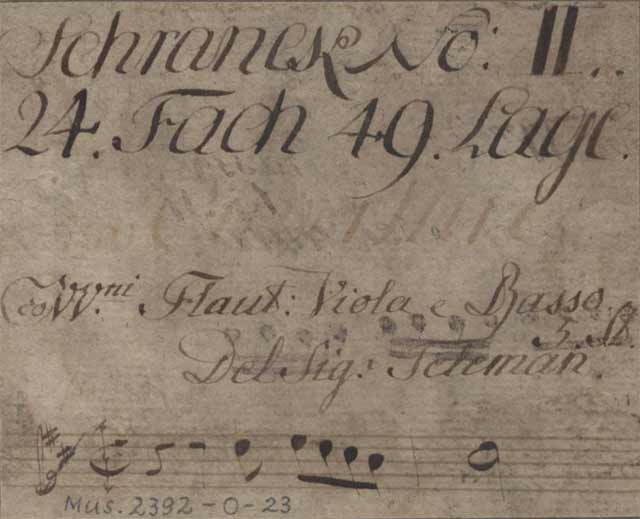 Schranck No: II..
24. Fach 49. Lage.
co VV.ni Flaut: Viola e Basso.
5. St.
Del Sig: Teleman.
Mus. 2392-O-23